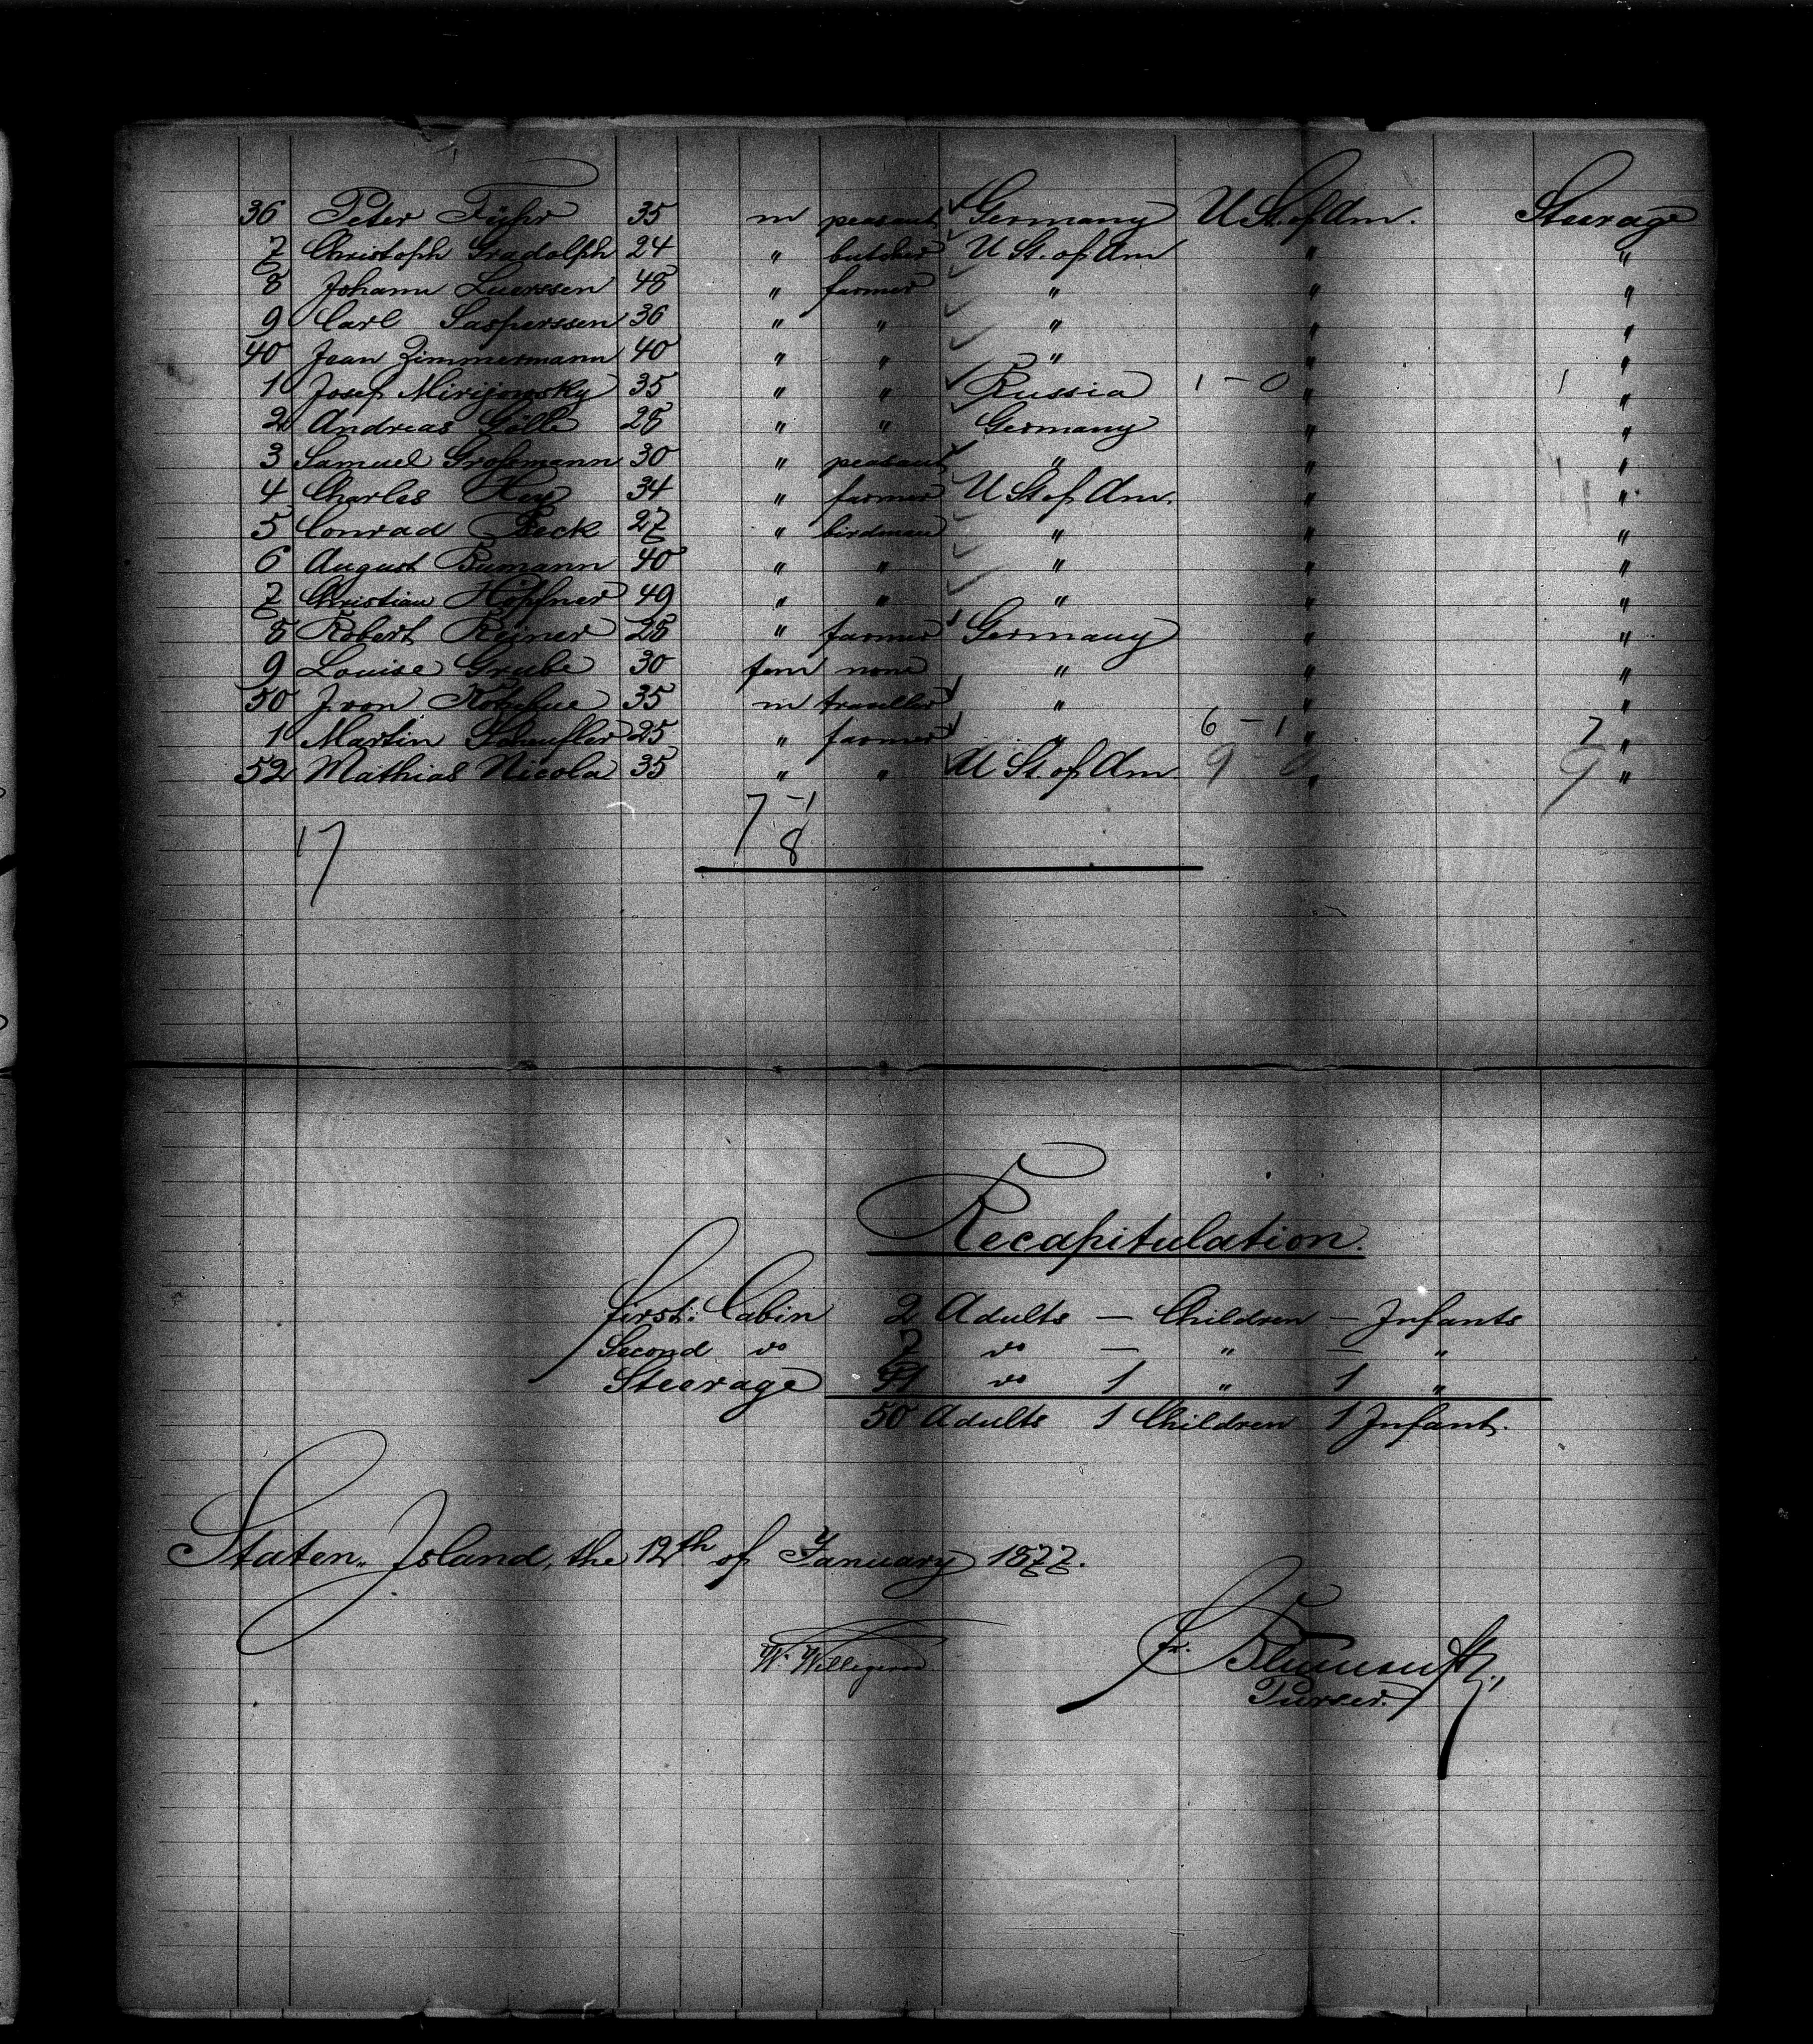 36 Peter Führ 35 m peasant Germany U St. of Am. Steerage
7 Christoph Gradolph 24 " butcher U St. of Am " "
8 Johann Luerssen 48 " farmer " " "
9 Carl Sasperssen 36 " " " " "
40 Jean Zimmermann 40 " " " " "
1 Josef Mirijowsky 35 " " Russia 1-0 " 1 "
2 Andreas Gölle 28 " " Germany " "
3 Samuel Großmann 30 " peasant " " "
4 Charles 34 " farmer U St of Am. " "
5 Conrad Beck 27 " birdman " " "
6 August Bumann 40 " " " " "
7 Christian Höpfner 49 " " " " "
8 Robert Reiner 28 " farmer Germany " "
9 Louise Grube 30 fem none " " "
50 J. von 35 m traveller " " "
1 Martin Scheufler 25 " farmer " 6-1 " 7 "
52 Mathias Nicola 35 " " U St. of Am 9-0 " 9 "
7-1
17 8
Recapitulation.
first: Cabin 2 Adults — Children — Infants
Second do 7 do — " — "
Steerage 41 do 1 " 1 "
50 Adults 1 Children 1 Infant.
Staten Island, the 12th of January 1877.
W. Willigerod
Fr.
Purser.